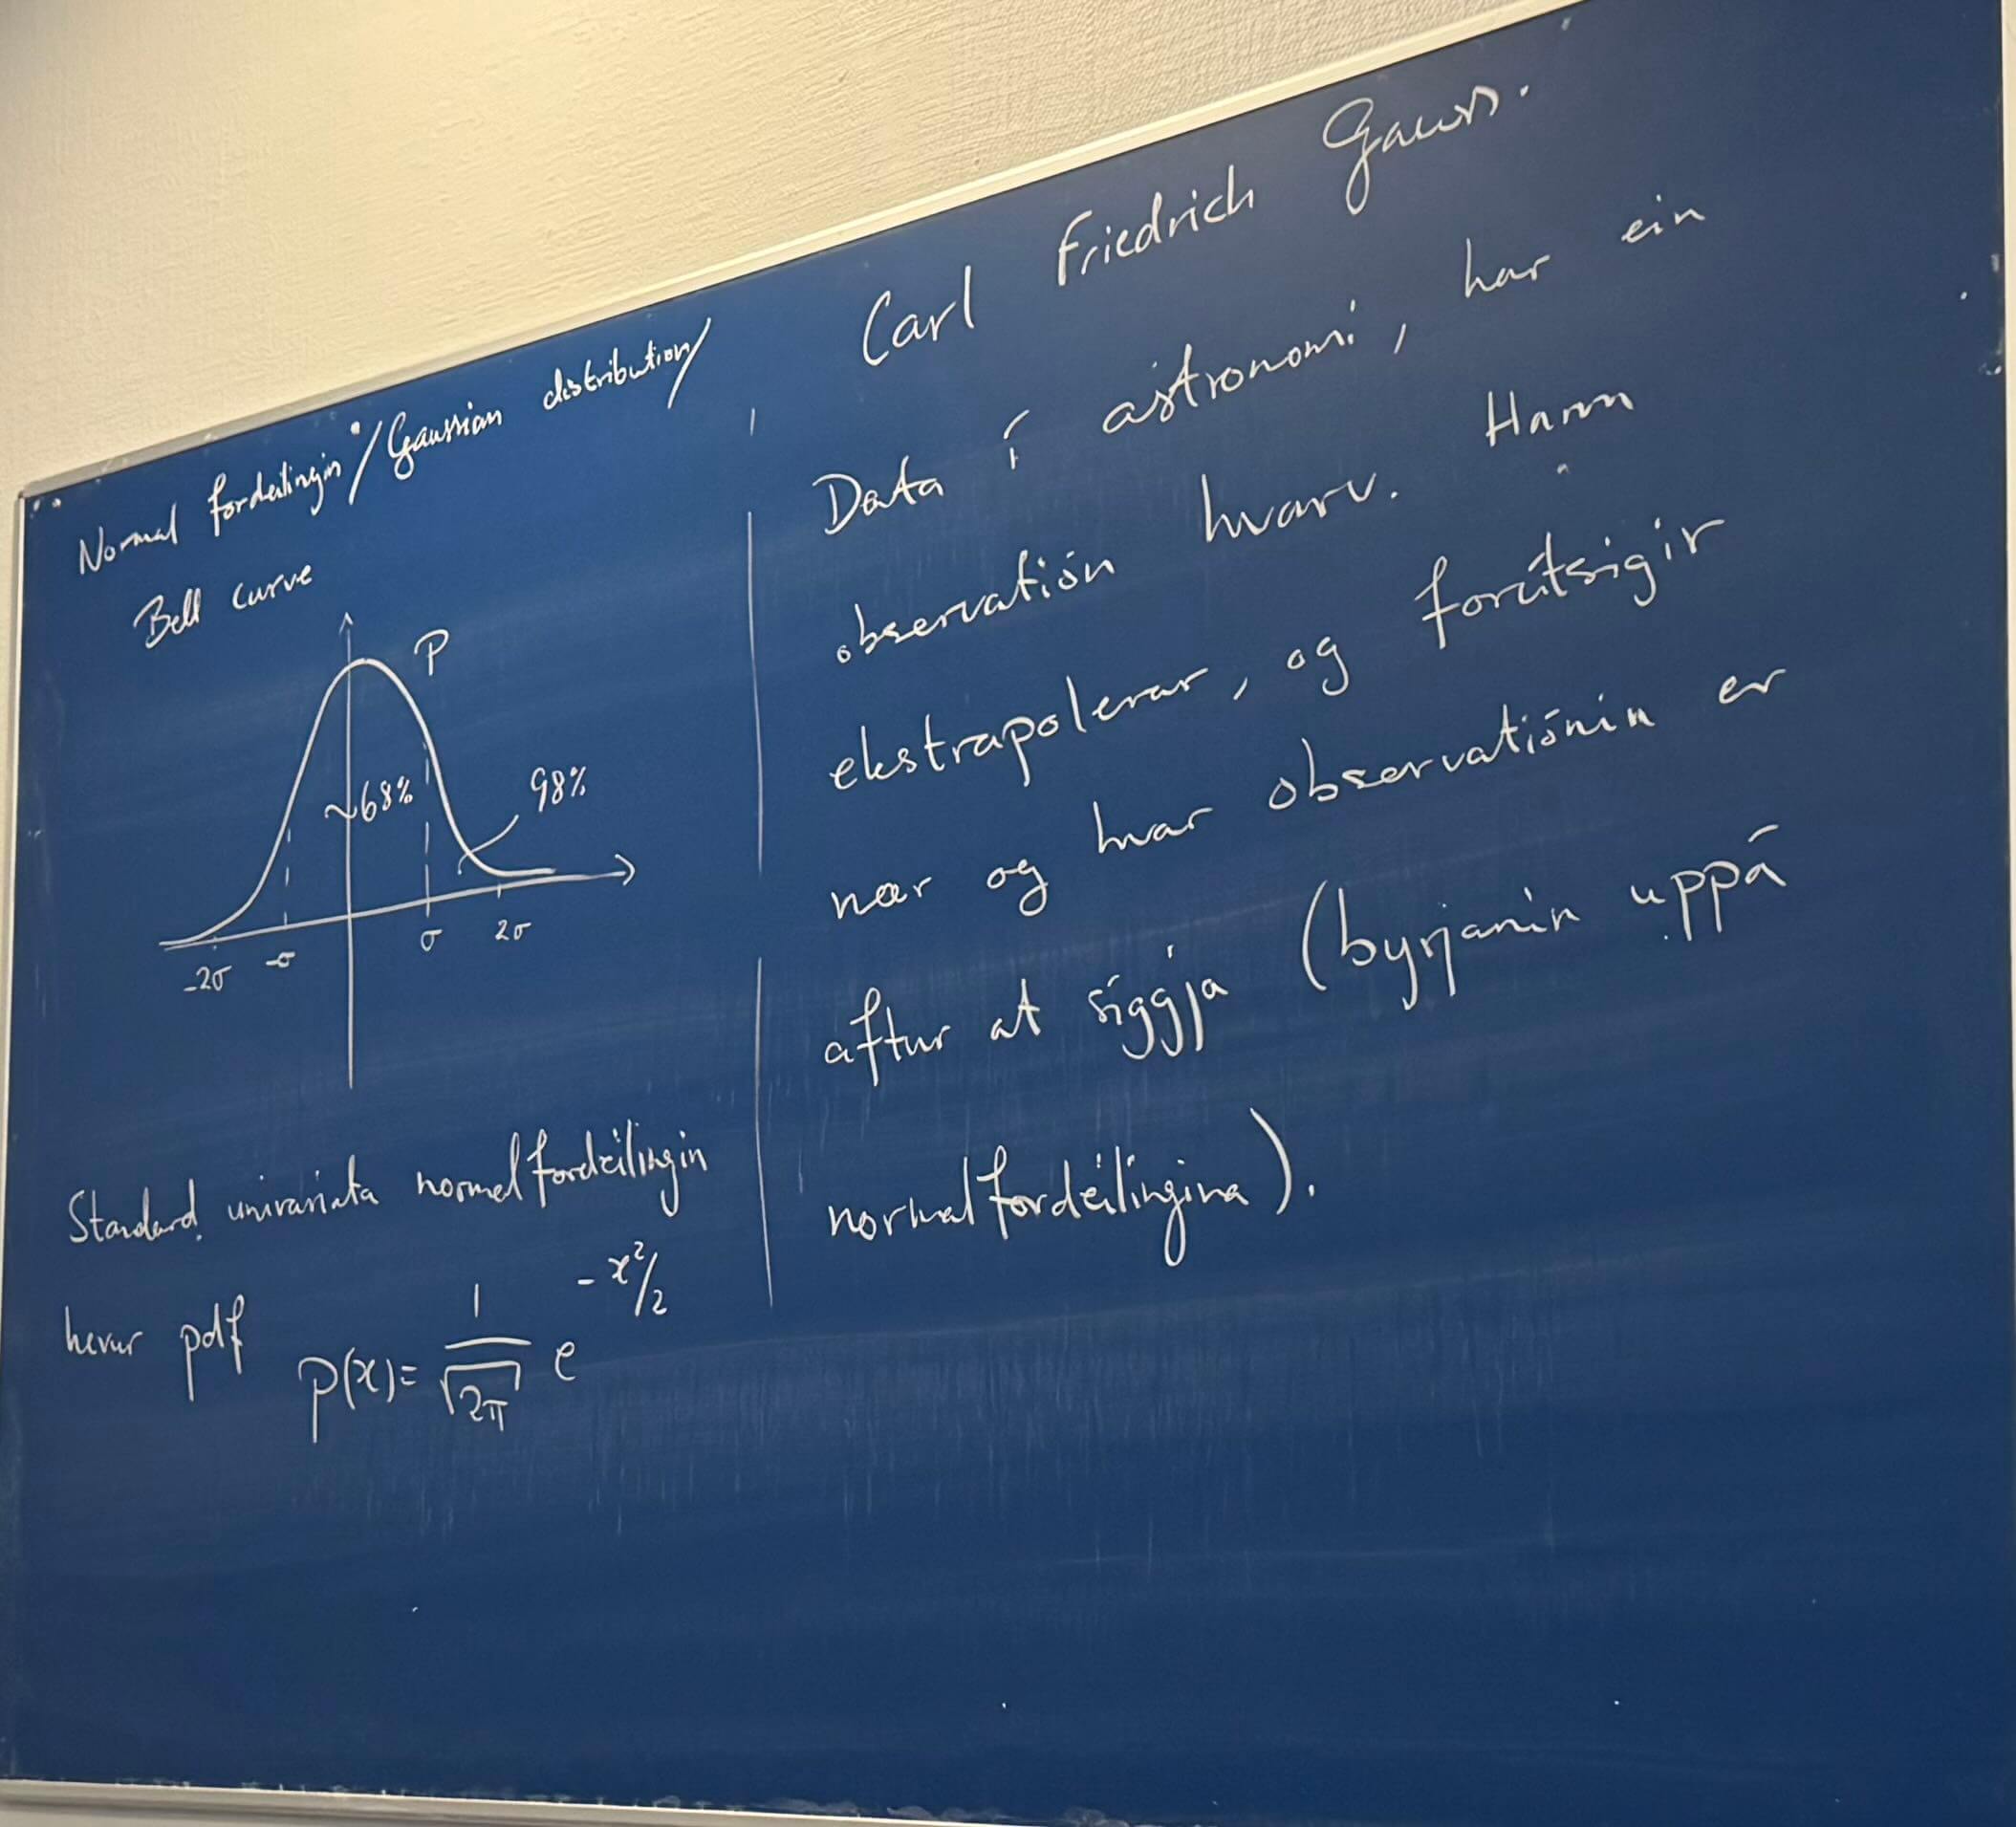 Normal fordeilingin/Gaussian distribution/
Bell curve
P
~68%
98%
-2σ -σ σ 2σ
Standard univariata normalfordeilingin
hevur pdf p(x)= 1/√2π e^-x²/2
Carl Friedrich Gauss.
Data í astronomi, har ein
observatión hvarv. Hann
ekstrapolerar, og forútsigir
nær og hvar observatiónin er
aftur at síggja (byrjanin uppá
normalfordeilingina).